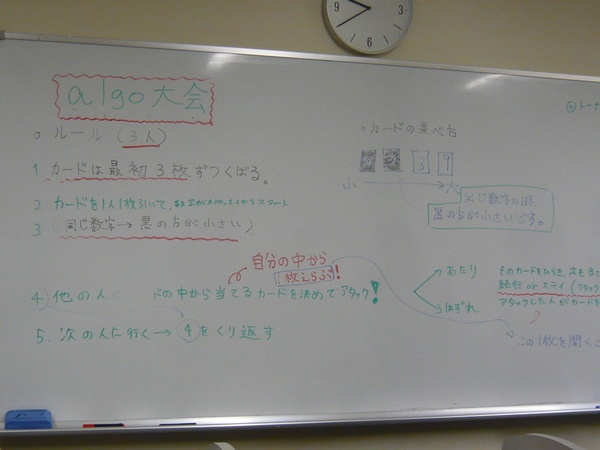 algo大会
○ルール(3人)
1 カードは最初3枚ずつくばる。
2 カードを1人1枚引いて、 スタート
3 (同じ数字→黒の方が小さい)
自分の中から
1枚えらぶ!
4 他の人 ドの中から当てるカードを決めてアタック!
5. 次の人に行く→④をくり返す
○カードの並べ方
3 9
小 → 大
同じ数字の時、
黒の方が小さいです。
あたり
そのカードをひらき、次も
続行 or ステイ (アタック
はずれ
アタックした人がカードを
この1枚を開くこ
◎トーナ
9 3 6